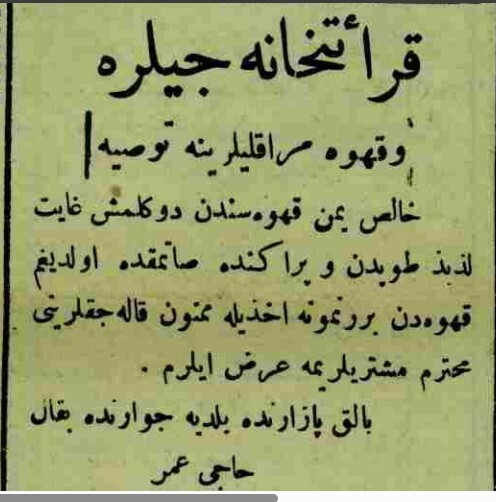 قرأتخانه جيلره
وقهوه مراقليلرينه توصيه
خالص يمن قهوه‌سندن دوكلمش غايت
لذيذ طوپدن و پراكنده صاتمقده اولديغم
قهوه‌دن بررنمونه اخذيله ممنون قاله‌جقلرينى
محترم مشتريلريمه عرض ايلرم .
بالق پازارنده بلديه جوارنده بقال
حاجى عمر